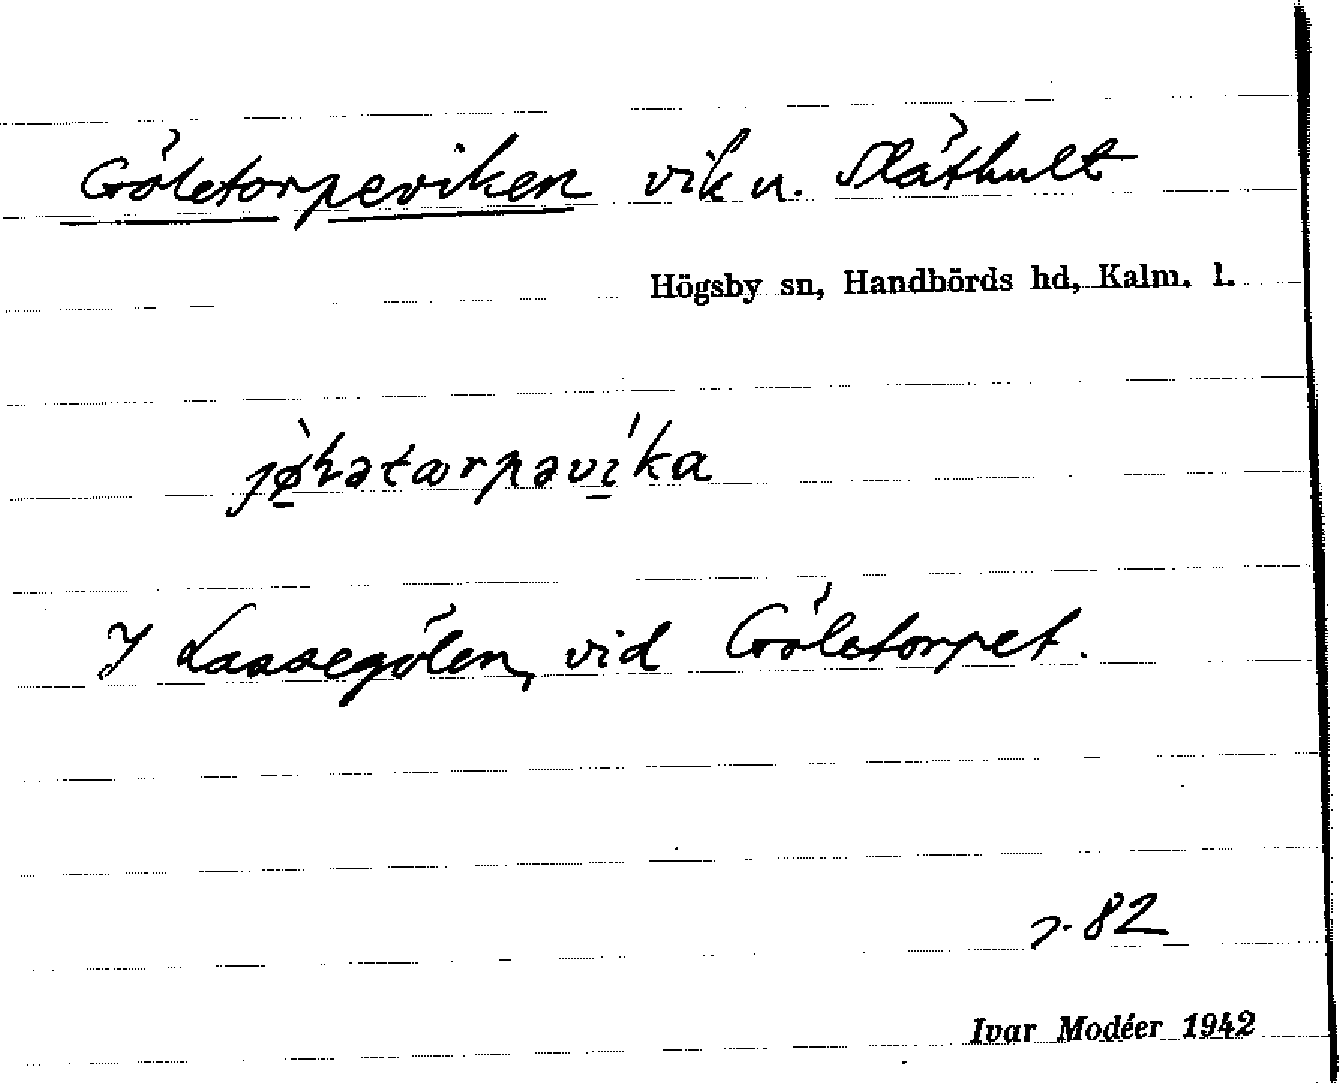 Göletorpeviken vik u. Släthult
Högsby sn, Handbörds hd, Kalm. l.
I Lassegölen, vid Göletorpet.
s. 82
Ivar Modéer 1942